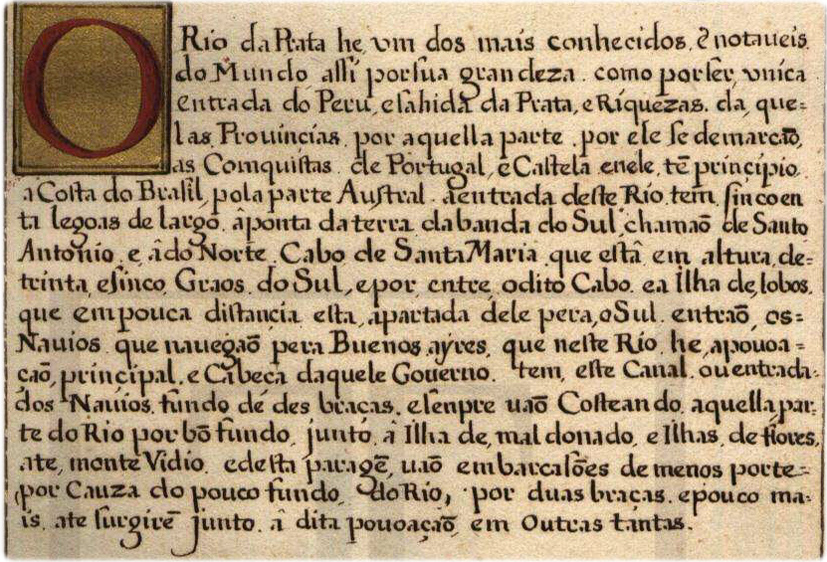 O Rio da Prata he, vm dos mais conhecidos, ẽ notaueis
do Mundo assi por sua grandeza. como por ser, vnica
entrada do Peru, e sahida da Prata, e Riquezas. da, que=
las Prouincias, por aquella parte. por ele se demarcão,
as Comquistas de Portugal, ẽ Castela e nele, tẽ principio,
a Costa do Brasil, pola parte Austral. a entrada deste Rio, tem, sincoen
ta legoas de largo, â ponta da terra da banda do Sul, chamaõ de Santo
Antonio, e, â do Norte, Cabo de Santa Maria, que está em altura, de=
trinta, e sinco, Graos, do Sul, e por, entre, o dito Cabo, e a Ilha de, lobos,
que em pouca distancia esta, apartada dele pera, o Sul. entraõ, os=
Nauios que nauegaõ pera Buenos, ayres, que neste Rio, he, a pouoa=
caõ, principal, e Cabeca daquele Gouerno. tem, este Canal, ou entrada
dos Nauios, fundo de des bracas, e senpre uaõ Costeando, aquella par=
te do Rio por bõ fundo, junto, â Ilha de, maldonado, e Ilhas, de flores,
ate, monte Vidio, e desta paragẽ, uaõ embarcasões de menos porte=
por Cauza do pouco fundo, do Rio, por duas braças, e pouco ma=
is, ate surgirẽ junto, â dita pouoação, em Outras tantas.